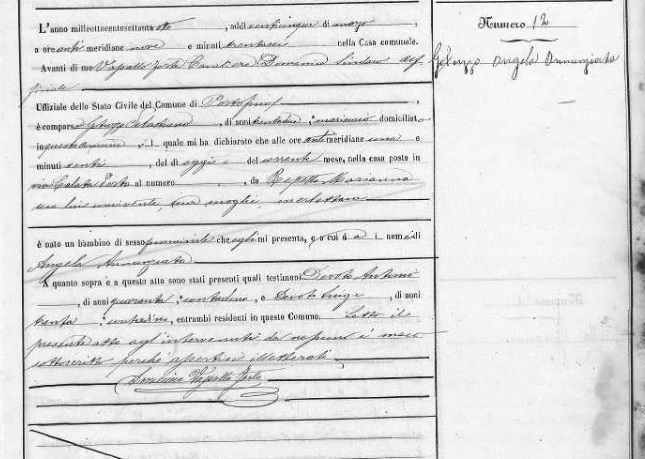 L'anno milleottocentosettanta otto, addì venticinque di marzo,
a ore anti meridiane nove e minuti trentasei, nella Casa comunale.
Avanti di me Vassallo Forte Cavaliere Domenico Sindaco
Uffiziale dello Stato Civile del Comune di Portofino,
è comparso Gotuzzo, di anni, marinaio domiciliato
in questo Comune, il quale mi ha dichiarato che alle ore antimeridiane una e
minuti venti, del dì oggi del corrente mese, nella casa posta in
via Calata Porto al numero, da Repetto Marianna
sua moglie, merlettaia
è nato un bambino di sesso femminile che egli mi presenta, e a cui dà i nomi di
Angela Annunziata
A quanto sopra e a questo atto sono stati presenti quali testimoni Devoto Antonio
, di anni quaranta, contadino, e Devoto Luigi, di anni
trenta, entrambi residenti in questo Comune. Letto il
presente atto agl'intervenuti da nessuno è meco
sottoscritto perché illetterati.
Domenico Vassallo Forte
Numero 12
Gotuzzo Angela Annunziata